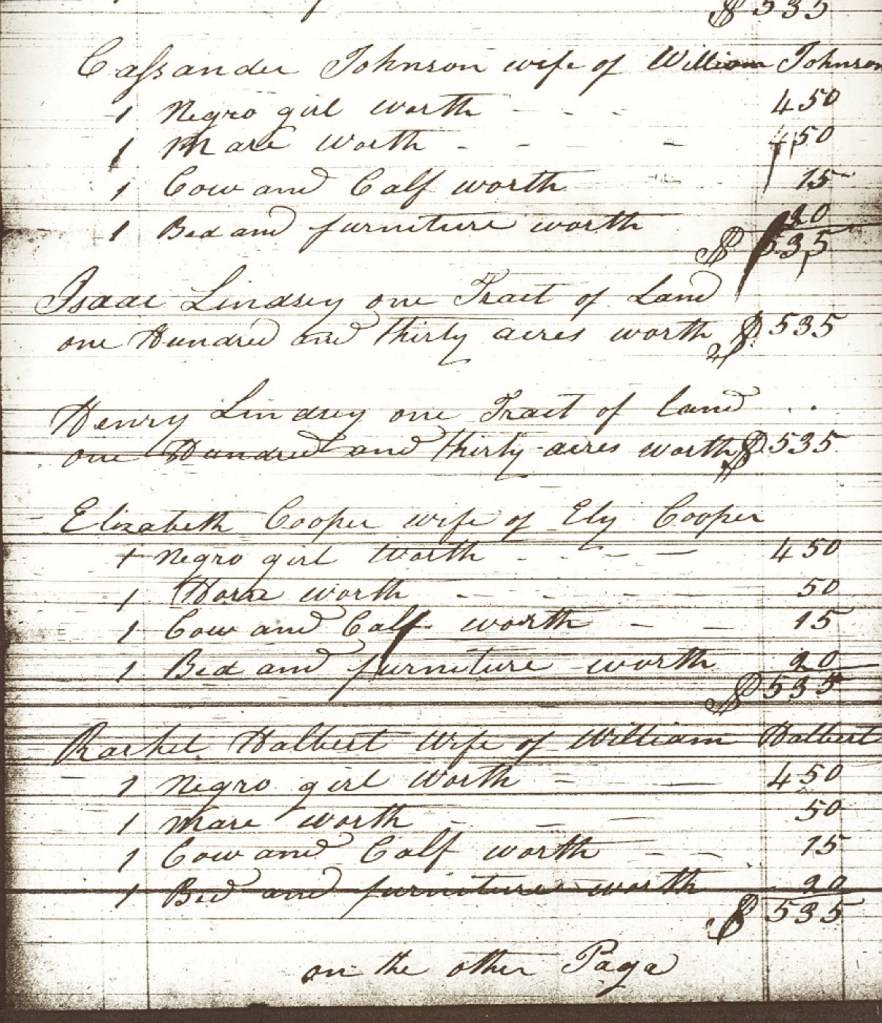 $ 535
Cassander Johnson wife of William Johnson
1 Negro girl worth - - - 450
1 Mare worth - - - - 50
1 Cow and Calf worth - 15
1 Bed and furniture worth 20
$ 535
Isaac Lindsey one Tract of Land
one Hundred and thirty acres worth $ 535
Henry Lindsey one Tract of land
one Hundred and thirty acres worth $ 535
Elizabeth Cooper wife of Ely Cooper
1 Negro girl worth - - - - 450
1 Horse worth - - - - - 50
1 Cow and Calf worth - - 15
1 Bed and furniture worth 20
$ 535
Rachel Halbert wife of William Halbert
1 Negro girl worth - - - 450
1 Mare worth - - - - 50
1 Cow and Calf worth - - 15
1 Bed and furniture worth 20
$ 535
on the other Page